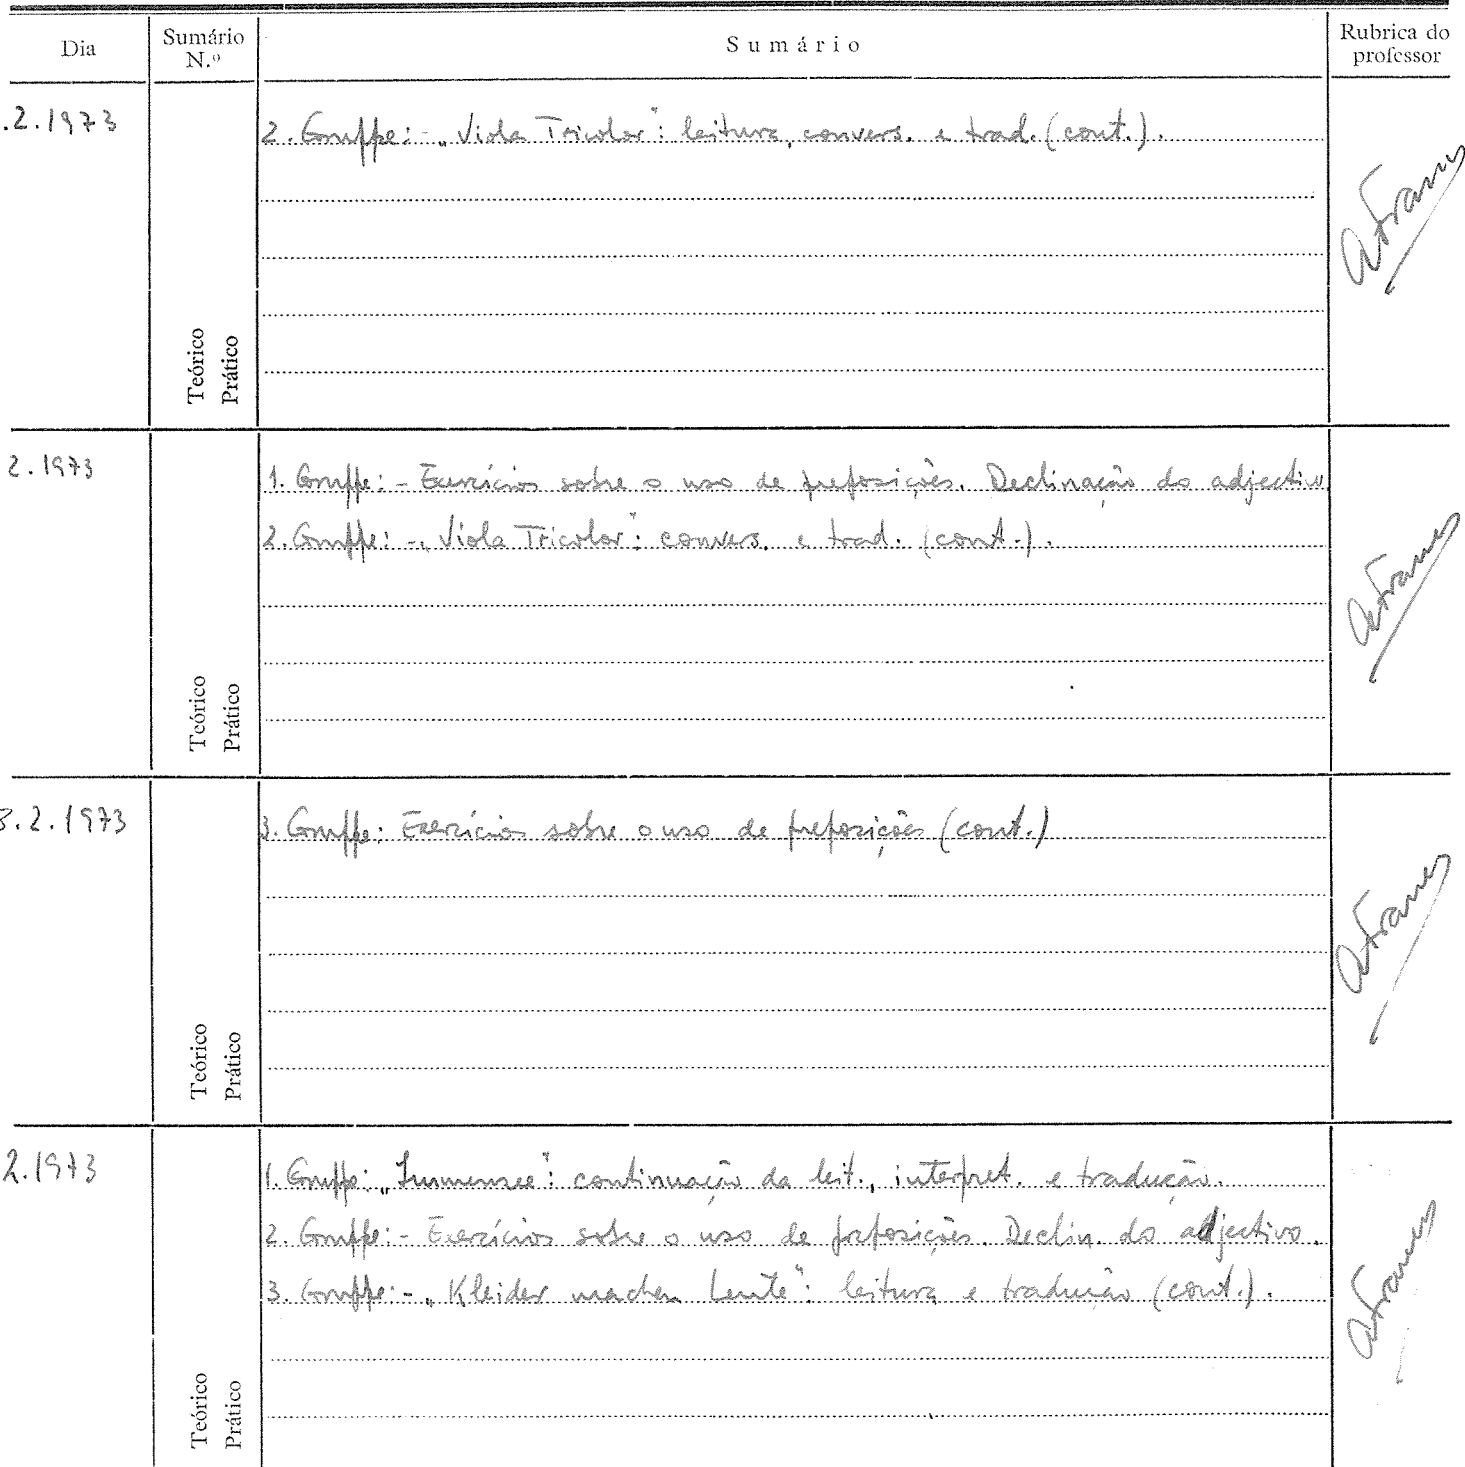 Dia
Sumário N.º
Sumário
Rubrica do professor
.2.1973
2. Gruppe: - „Viola Tricolor": leitura, convers. e trad. (cont.).
Teórico
Prático
2.1973
1. Gruppe: - Exercícios sobre o uso de preposições. Declinação do adjectivo
2. Gruppe: - „Viola Tricolor": convers. e trad. (cont.).
Teórico
Prático
8.2.1973
3. Gruppe: Exercícios sobre o uso de preposições (cont.)
Teórico
Prático
2.1973
1. Gruppe: „Immensee": continuação da leit., interpret. e tradução.
2. Gruppe: - Exercícios sobre o uso de preposições. Declin. do adjectivo.
3. Gruppe: - „Kleider machen Leute": leitura e tradução (cont.).
Teórico
Prático